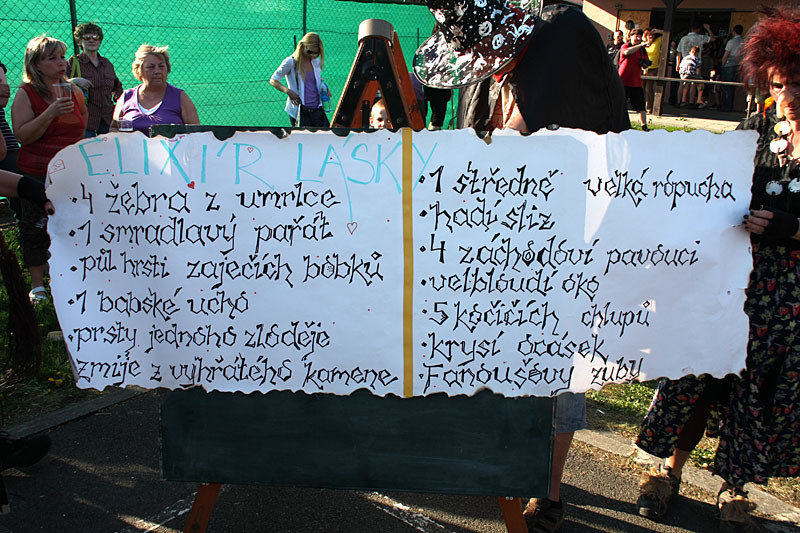 ELIXI'R LÁSKY
·4 žebra z umrlce
·1 smradlavý pařát
·půl hrsti zaječích bobků
·1 babské ucho
·prsty jednoho zloděje
zmije z vyhřátého kamene
·1 středně velká rópucha
·hadí sliz
·4 záchodoví pavouci
·velbloudí oko
·5 kočičích chlupů
·krysí ocásek
·Fanouššovy zuby